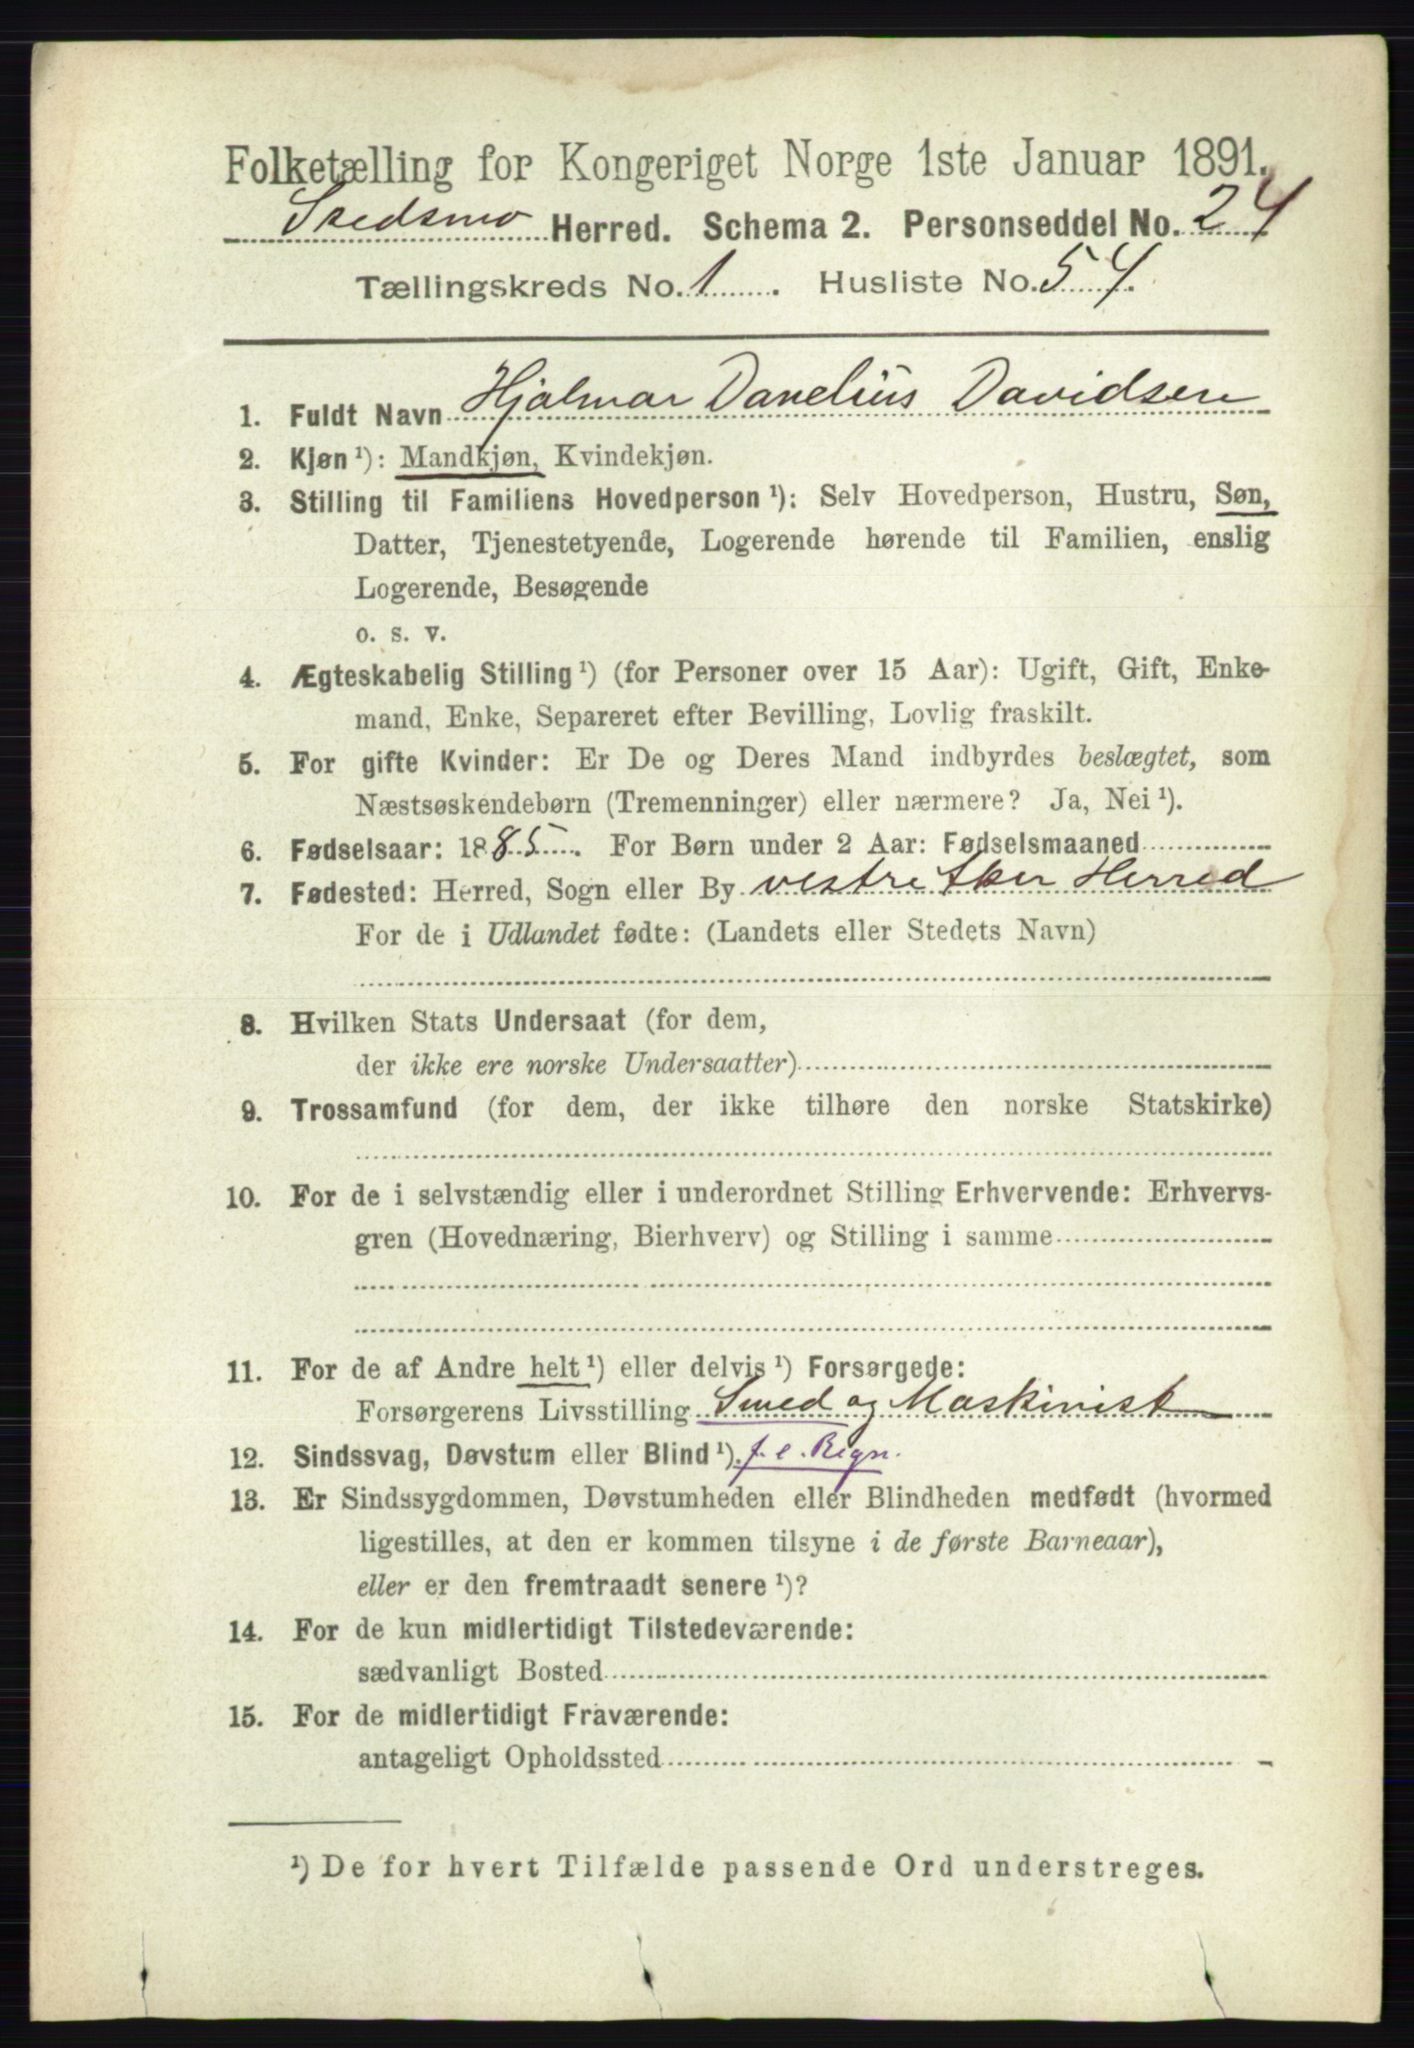 Folketælling for Kongeriget Norge 1ste Januar 1891.
Skedsmo Herred. Schema 2. Personseddel No. 24
Tællingskreds No. 1. Husliste No. 54.
1. Fuldt Navn Hjalmar Danelius Davidsen
2. Kjøn ¹): Mandkjøn, Kvindekjøn.
3. Stilling til Familiens Hovedperson ¹): Selv Hovedperson, Hustru, Søn,
Datter, Tjenestetyende, Logerende hørende til Familien, enslig
Logerende, Besøgende
o. s. v.
4. Ægteskabelig Stilling ¹) (for Personer over 15 Aar): Ugift, Gift, Enke-
mand, Enke, Separeret efter Bevilling, Lovlig fraskilt.
5. For gifte Kvinder: Er De og Deres Mand indbyrdes beslægtet, som
Næstsøskendebørn (Tremenninger) eller nærmere? Ja, Nei ¹).
6. Fødselsaar: 1885. For Børn under 2 Aar: Fødselsmaaned
7. Fødested: Herred, Sogn eller By vestre Aker Herred
For de i Udlandet fødte: (Landets eller Stedets Navn)
8. Hvilken Stats Undersaat (for dem,
der ikke ere norske Undersaatter)
9. Trossamfund (for dem, der ikke tilhøre den norske Statskirke)
10. For de i selvstændig eller i underordnet Stilling Erhvervende: Erhvervs-
gren (Hovednæring, Bierhverv) og Stilling i samme
11. For de af Andre helt ¹) eller delvis ¹) Forsørgede:
Forsørgerens Livsstilling Smed og Maskinist
12. Sindssvag, Døvstum eller Blind ¹). f. e. Regn.
13. Er Sindssygdommen, Døvstumheden eller Blindheden medfødt (hvormed
ligestilles, at den er kommen tilsyne i de første Barneaar),
eller er den fremtraadt senere ¹)?
14. For de kun midlertidigt Tilstedeværende:
sædvanligt Bosted
15. For de midlertidigt Fraværende:
antageligt Opholdssted
¹) De for hvert Tilfælde passende Ord understreges.